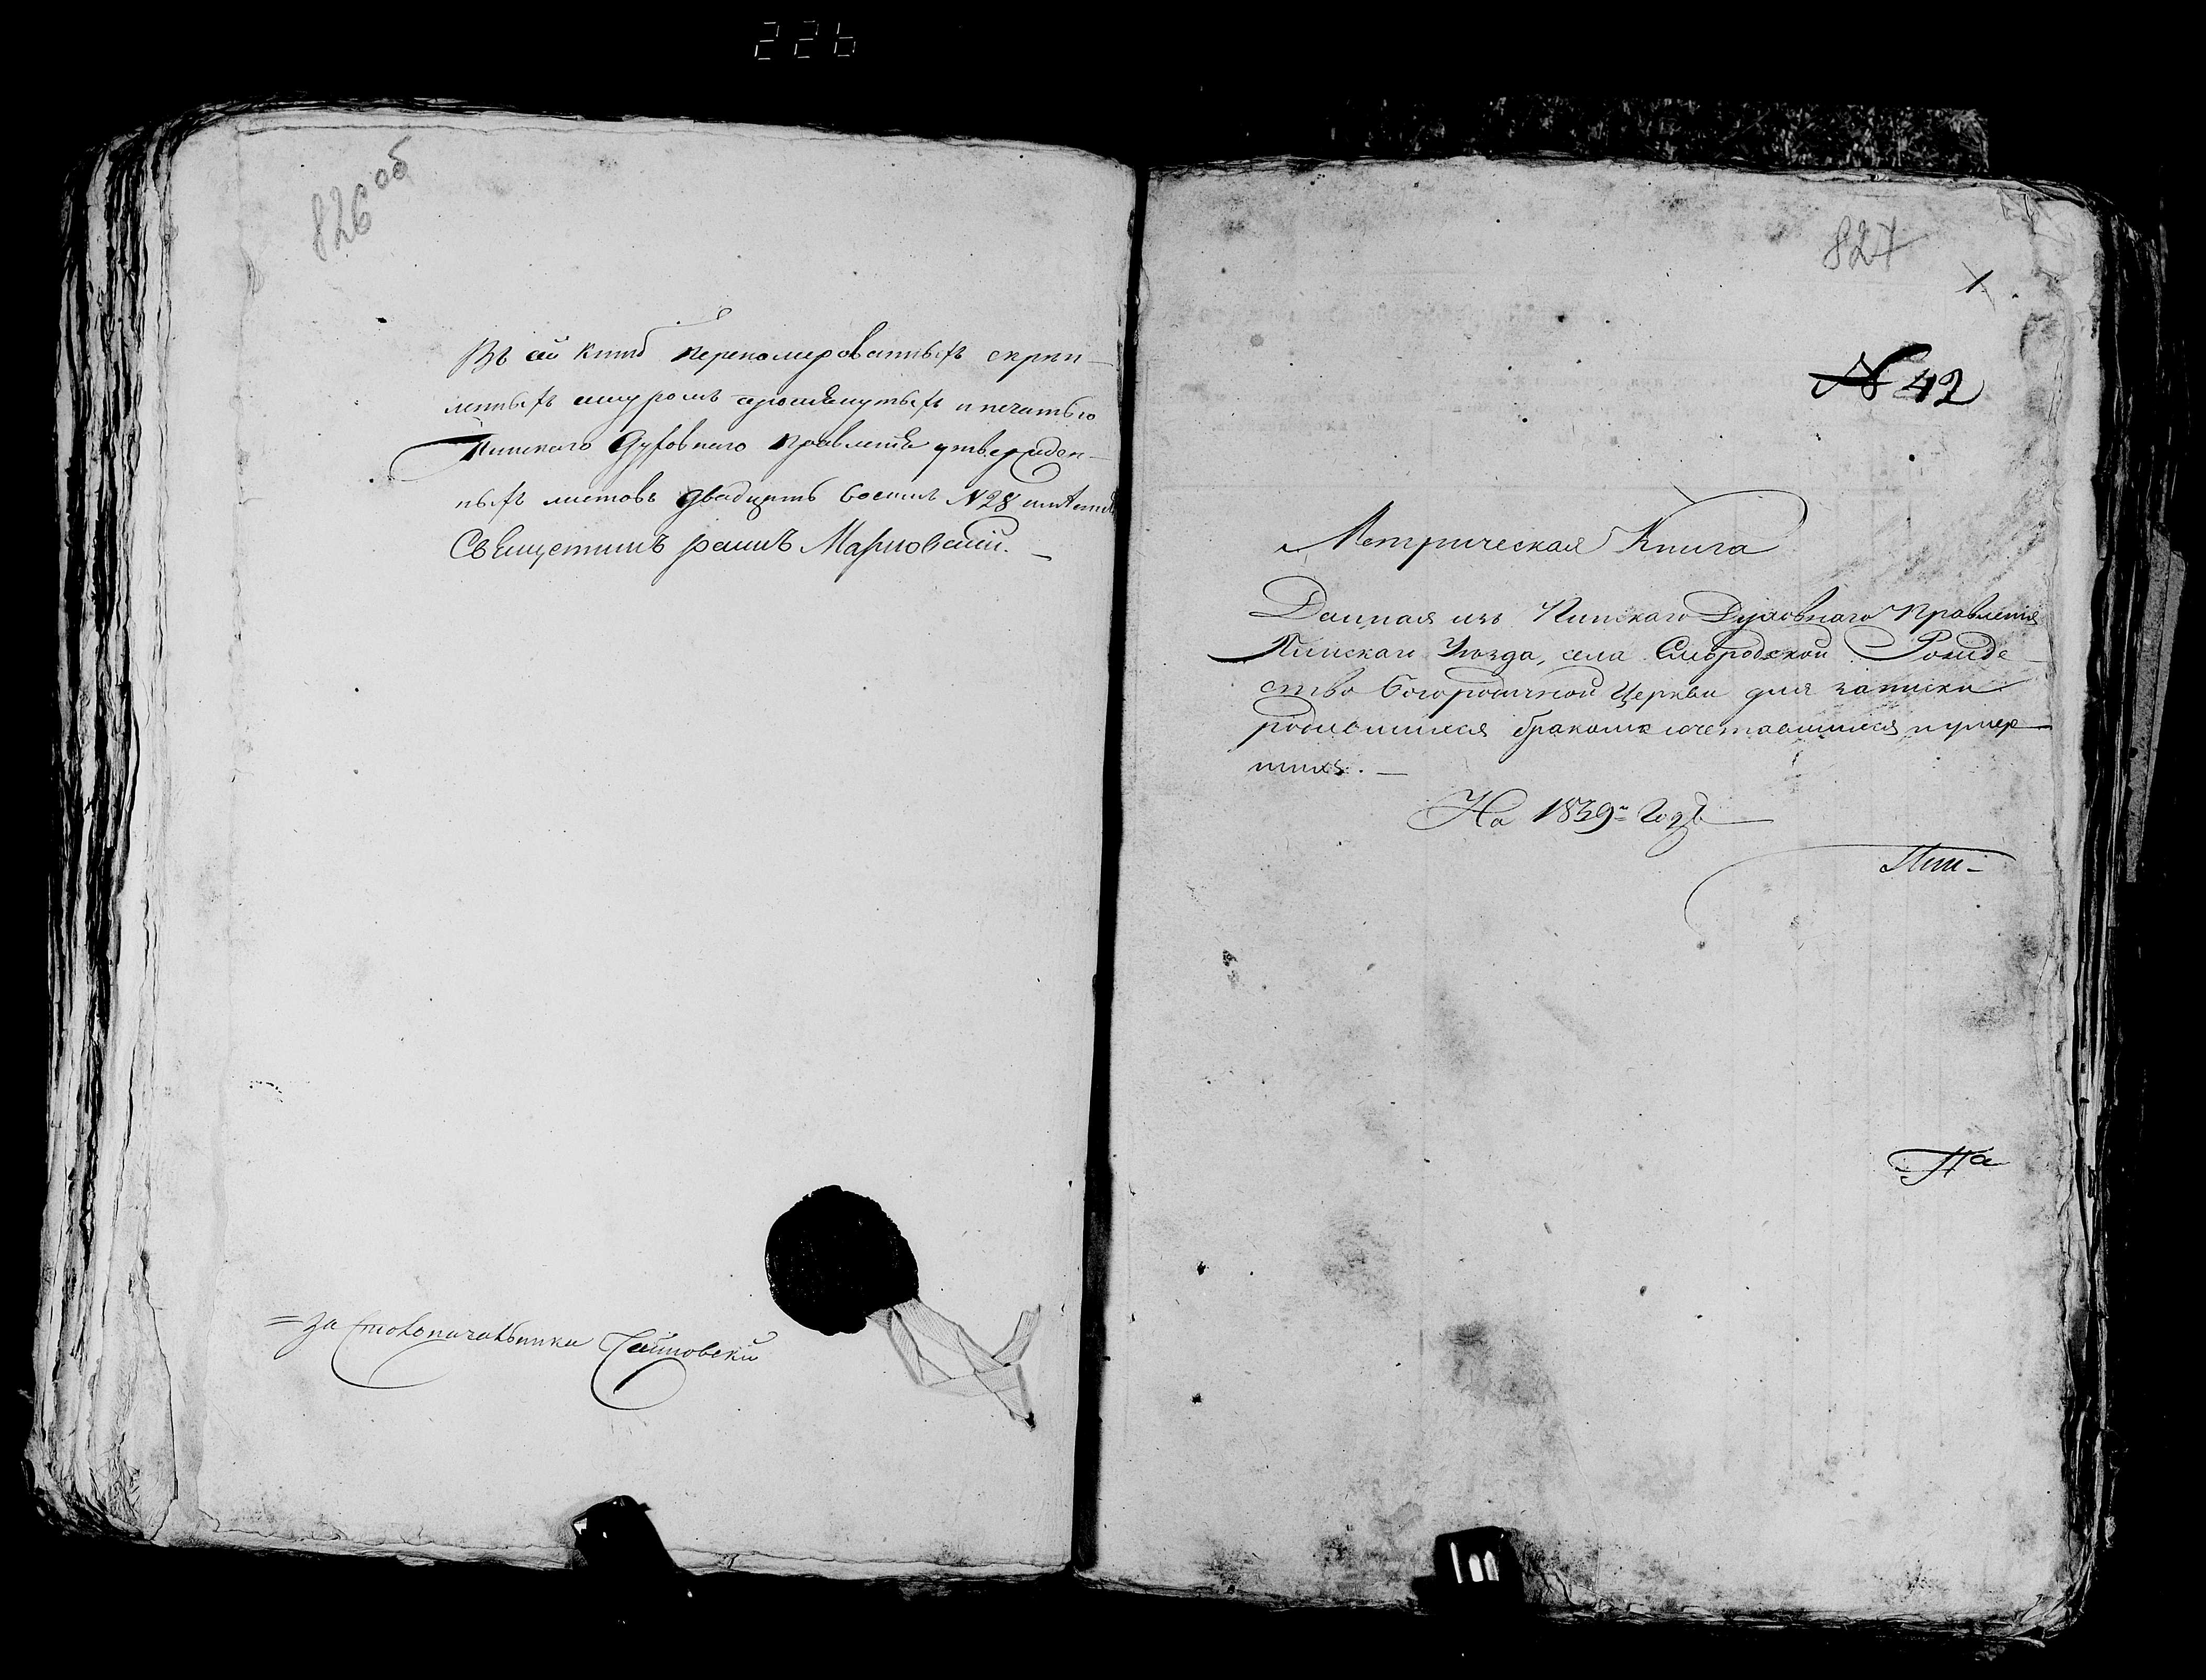 226
826 об
Въ сей книгѣ перенумерованныхъ скрѣп-
ленныхъ шнуромъ прошнутыхъ и печатью
Пинскаго Духовнаго Правленія утвержден-
ныхъ листовъ двадцать восемь N 28
Священникъ
= За Столоначальника
827
N 42
Метрическая Книга
Данная изъ Пинскаго Духовнаго Правленія
Пинскаго Уѣзда, села Смородской Рожде-
ство Богородичной Церкви для записки
родившихся бракомъ сочетавшихся и умер-
шихъ. —
На 1839й Годъ
Пин-